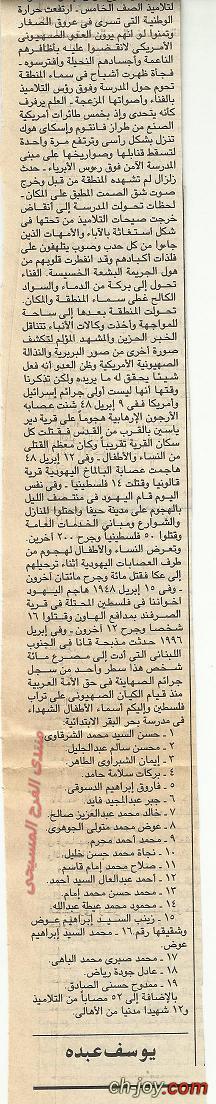 لتلاميذ الصف الخامس - ارتفعت حرارة
الوطنية التى تسرى فى عروق الصغار
وتمنوا لو أنهم يرون العدو الصهيونى
الأمريكى لانقضوا عليه بأظافرهم
الناعمة وأجسادهم النحيلة وافترسوه -
فجأة ظهرت أشباح فى سماء المنطقة
تحوم حول المدرسة وفوق رؤس التلاميذ
بالفناء وأصواتها المزعجة - العلم يرفرف
كأنه يتحدى وإذ بخمس طائرات أمريكية
الصنع من طراز فانتوم وإسكاى هوك
تنزل بشكل رأسى وترتفع مرة واحدة
لتسقط قنابلها وصواريخها على مبنى
المدرسة الآمن فوق رءوس الأبرياء - حدث
زلزال لم تشهده المنطقة من قبل وخرج
صوت شق الصمت المطبق على المكان -
لحظات تحولت المدرسة إلى أنقاض
خرجت صيحات التلاميذ من تحتها فى
شكل استغاثة بالآباء والأمهات الذين
جاءوا من كل حدب وصوب يتلهفون على
فلذات أكبادهم وقد انفطرت قلوبهم من
هول الجريمة البشعة الخسيسة. الفناء
تحول إلى بركة من الدماء والسواد
الكالح غطى سماء المنطقة والمكان.
تحولت المنطقة بعدها إلى ساحة
للمواجهة وأخذت وكالات الأنباء تتناقل
الخبر الحزين والمشهد المؤلم لتكشف
صورة أخرى من صور البربرية والنذالة
الصهيونية الأمريكية وظن العدو أنه فعل
شيئا يحقق له ما يريده ولكن تذكرنا
وقتها أنها ليست أولى جرائم إسرائيل
وأمريكا ففى ٩ إبريل ٤٨ شنت عصابة
الأرجون الإرهابية هجوماً على قرية دير
ياسين بالقرب من القدس فقتلت كل
سكان القرية تقريباً وكان معظم القتلى
من النساء والأطفال - وفى ١٢ إبريل ٤٨
هاجمت عصابة البالماخ اليهودية قرية
قالونيا وقتلت ١٤ فلسطينيا - وفى نفس
اليوم قام اليهود فى منتصف الليل
بالهجوم على مدينة حيفا واحتلوا المنازل
والشوارع ومبانى الخدمات العامة
وقتلوا ٥٠ فلسطينيا وجرح ٢٠٠ آخرين.
وتعرض النساء والأطفال لهجوم من
طرف العصابات اليهودية أثناء ترحيلهم
إلى عكا فقتل مائة وجرح مائتان آخرون
- وفى ١٥ إبريل ١٩٤٨ هاجم اليهود
اخواننا فى فلسطين المحتلة فى قرية
الصرفند بمدافع الهاون وقتلوا ١٦
شخصاً وجرح ١٢ آخرون - وفى إبريل
١٩٩٦ حدثت مذبحة قانا فى الجنوب
اللبنانى التى أدت إلى مصرع مائة
شخص هذا سطر واحد من سجل
جرائم الصهاينة فى حق الأمة العربية
منذ قيام الكيان الصهيونى على تراب
فلسطين وإليكم أسماء الأطفال الشهداء
فى مدرسة بحر البقر الابتدائية:
١ - حسن السيد محمد الشرقاوى
٢ - محسن سالم عبدالجليل.
٣ - إيمان الشبراوى الطاهر.
٤ - بركات سلامة حامد.
٥ - فاروق إبراهيم الدسوقى.
٦ - جبر عبدالمجيد فايد.
٧ - خالد محمد عبدالعزيز صالح.
٨ - عوض محمد متولى الجوهرى.
٩ - محمد أحمد محرم.
١٠ - نجاة محمد حسن خليل.
١١ - صلاح محمد إمام قاسم.
١٢ - أحمد عبدالعال السيد أحمد.
١٣ - محمد حسن محمد إمام.
١٤ - محمود محمد عطية عبدالله.
١٥ - زينب السيد إبراهيم عوض
وشقيقها رقم ١٦ - محمد السيد إبراهيم
عوض.
١٧ - محمد صبرى محمد الباهى.
١٨ - عادل جودة رياض.
١٩ - ممدوح حسنى الصادق.
بالإضافة إلى ٥٢ مصاباً من التلاميذ
و١٢ شهيدا مدنيا من الأهالى.
يوسف عبده
منتدى الفرح المسيحى
ch-joy.com